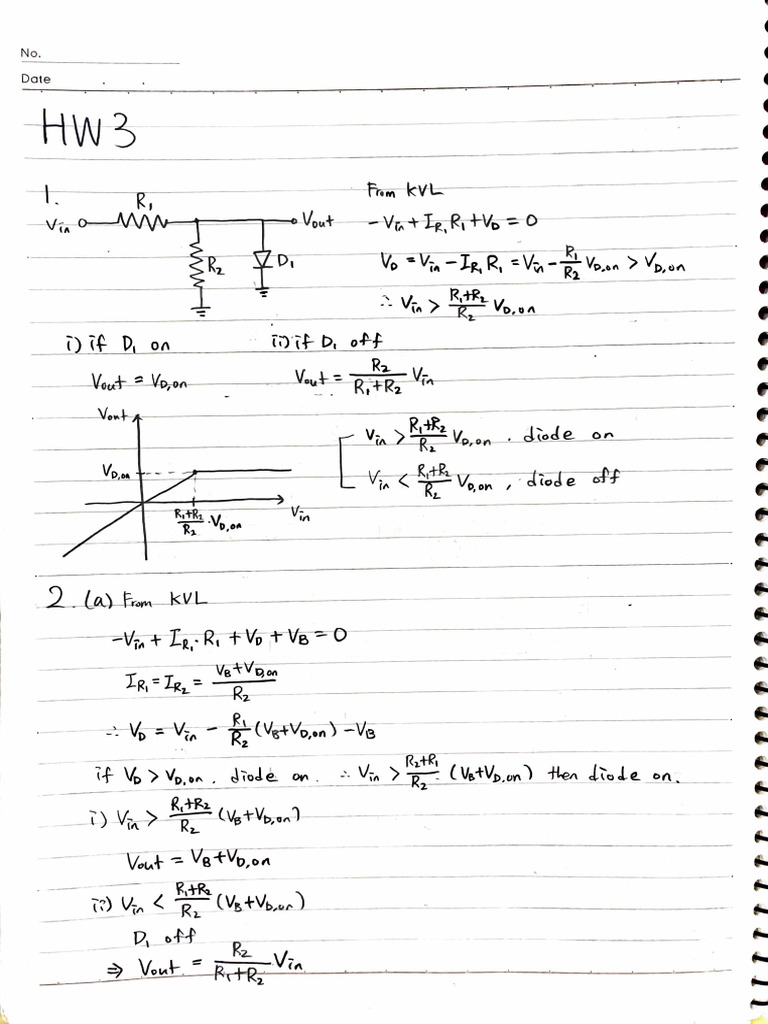 No.
Date . .
HW 3
1.
R₁
Vin
Vout
R₂
D₁
From KVL
-Vin + I_R₁ R₁ + V_D = 0
V_D = Vin - I_R₁ R₁ = Vin - R₁/R₂ V_D,on > V_D,on
∴ Vin > (R₁+R₂)/R₂ V_D,on
i) if D₁ on
Vout = V_D,on
ii) if D₁ off
Vout = R₂/(R₁+R₂) Vin
Vout
V_D,on
(R₁+R₂)/R₂ · V_D,on
Vin
Vin > (R₁+R₂)/R₂ V_D,on . diode on
Vin < (R₁+R₂)/R₂ V_D,on , diode off
2. (a) From KVL
-Vin + I_R₁ · R₁ + V_D + V_B = 0
I_R₁ = I_R₂ = (V_B+V_D,on)/R₂
∴ V_D = Vin - R₁/R₂ (V_B+V_D,on) - V_B
if V_D > V_D,on . diode on. ∴ Vin > (R₂+R₁)/R₂ (V_B+V_D,on) then diode on.
i) Vin > (R₁+R₂)/R₂ (V_B+V_D,on)
Vout = V_B+V_D,on
ii) Vin < (R₁+R₂)/R₂ (V_B+V_D,on)
D₁ off
⇒ Vout = R₂/(R₁+R₂) Vin